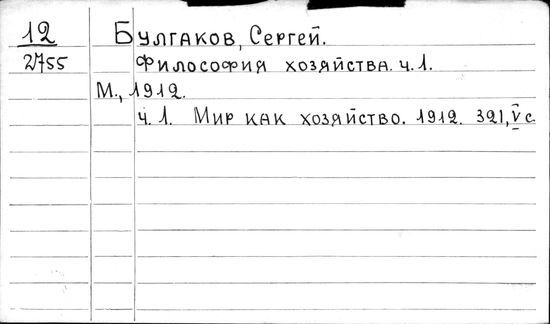 12
2755
Булгаков, Сергей.
Философия хозяйства. ч.1.
М., 1912.
ч.1. Мир как хозяйство. 1912. 321, V с.